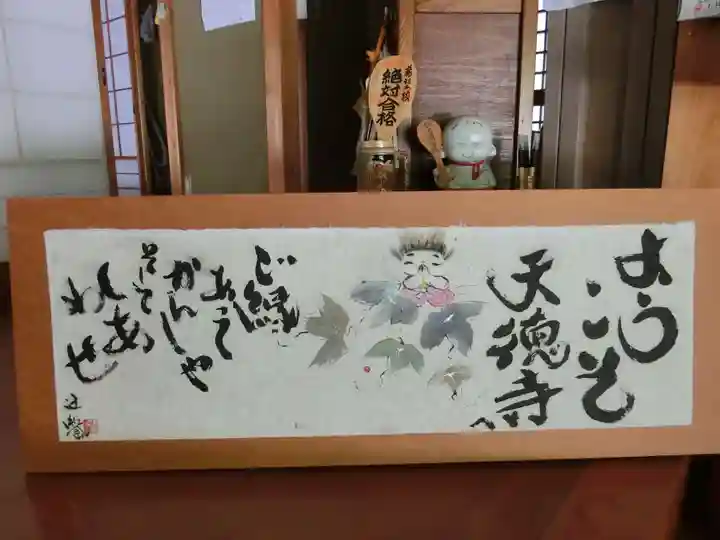 ようこそ
天徳寺へ
ご縁
あって
かんしゃ
そして
しあ
わせ
絶対合格